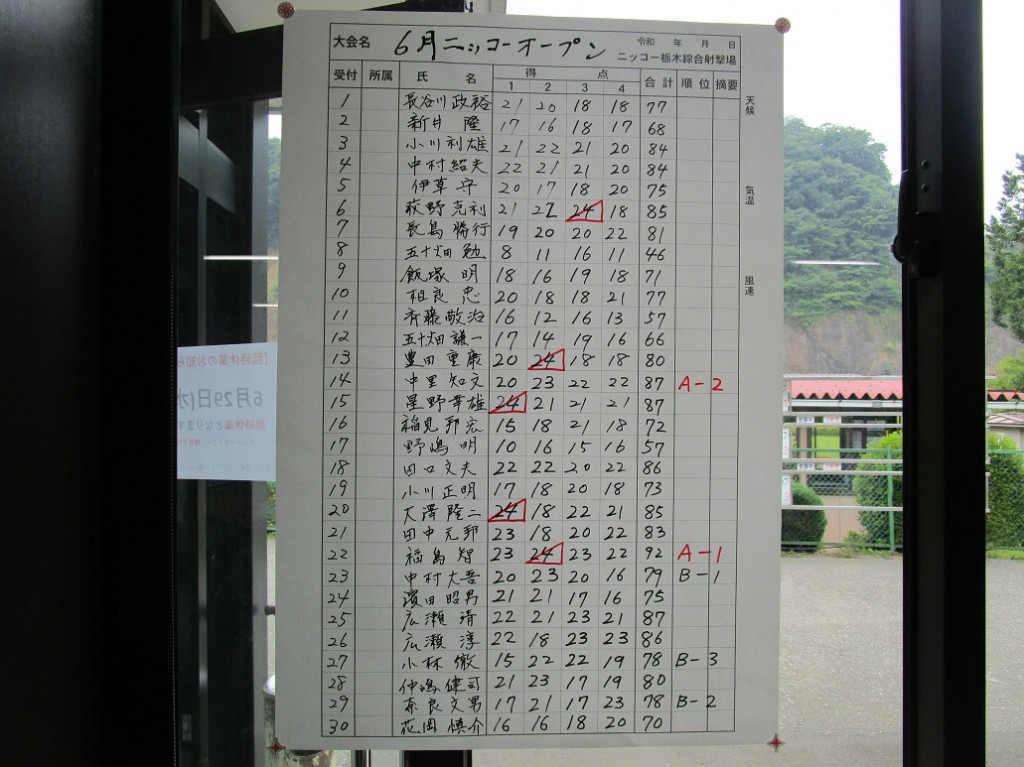 大会名 6月ニッコーオープン 令和 年 月 日
ニッコー栃木綜合射撃場
受付 所属 氏名 得点 合計 順位 摘要
1 2 3 4
1 長谷川政裕 21 20 18 18 77
2 新井 隆 17 16 18 17 68
3 小川利雄 21 22 21 20 84
4 中村紹夫 22 21 21 20 84
5 伊草 守 20 17 18 20 75
6 荻野克利 21 22 24 18 85
7 長島勝行 19 20 20 22 81
8 五十畑 勉 8 11 16 11 46
9 飯塚 明 18 16 19 18 71
10 相良 忠 20 18 18 21 77
11 斉藤敬治 16 12 16 13 57
12 五十畑謙一 17 14 19 16 66
13 豊田重康 20 24 18 18 80
14 中里知文 20 23 22 22 87 A-2
15 星野幸雄 24 21 21 21 87
16 稲見邦宏 15 18 21 18 72
17 野嶋 明 10 16 15 16 57
18 田口文夫 22 22 20 22 86
19 小川正明 17 18 20 18 73
20 大澤隆二 24 18 22 21 85
21 田中元邦 23 18 20 22 83
22 福島 智 23 24 23 22 92 A-1
23 中村大吾 20 23 20 16 79 B-1
24 濱田昭男 21 21 17 16 75
25 広瀬 靖 22 21 23 21 87
26 広瀬 淳 22 18 23 23 86
27 小林 徹 15 22 22 19 78 B-3
28 仲嶋健司 21 23 17 19 80
29 奈良文男 17 21 17 23 78 B-2
30 花岡慎介 16 16 18 20 70
天候
気温
風速
臨時休業のお知ら
6月29日(水
臨時休業となります